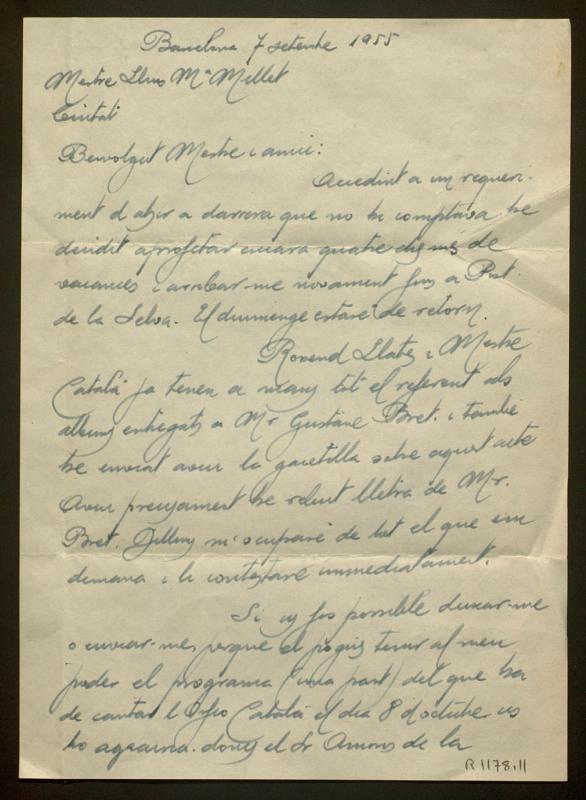 Barcelona 7 setembre 1955
Mestre Lluis Mª Millet
Ciutat
Benvolgut Mestre i amic:
Accedint a un requeri-
ment d'ahir a darrera que no hi comptava he
decidit aprofitar encara quatre dies més de
vacances i arribar-me novament fins a Port
de la Selva. El diumenge estaré de retorn.
Rossend Llates i Mestre
Català ja tenen a mans tot el referent als
albums entregats a Mr Gustave Bret. i també
he enviat avui la gacetilla sobre aquest acte
Avui precisament he rebut lletra de Mr.
Bret. Dilluns m'ocuparé de tot el que em
demana i li contestaré immediatament.
Si us fos possible deixar-me
o enviar-me, perque el pogués tenir al meu
poder el programa (una part) del que ha
de cantar l'Orfeo Català el dia 8 d'octubre us
ho agrairia. doncs el dr Amoros de la
R 1178.11